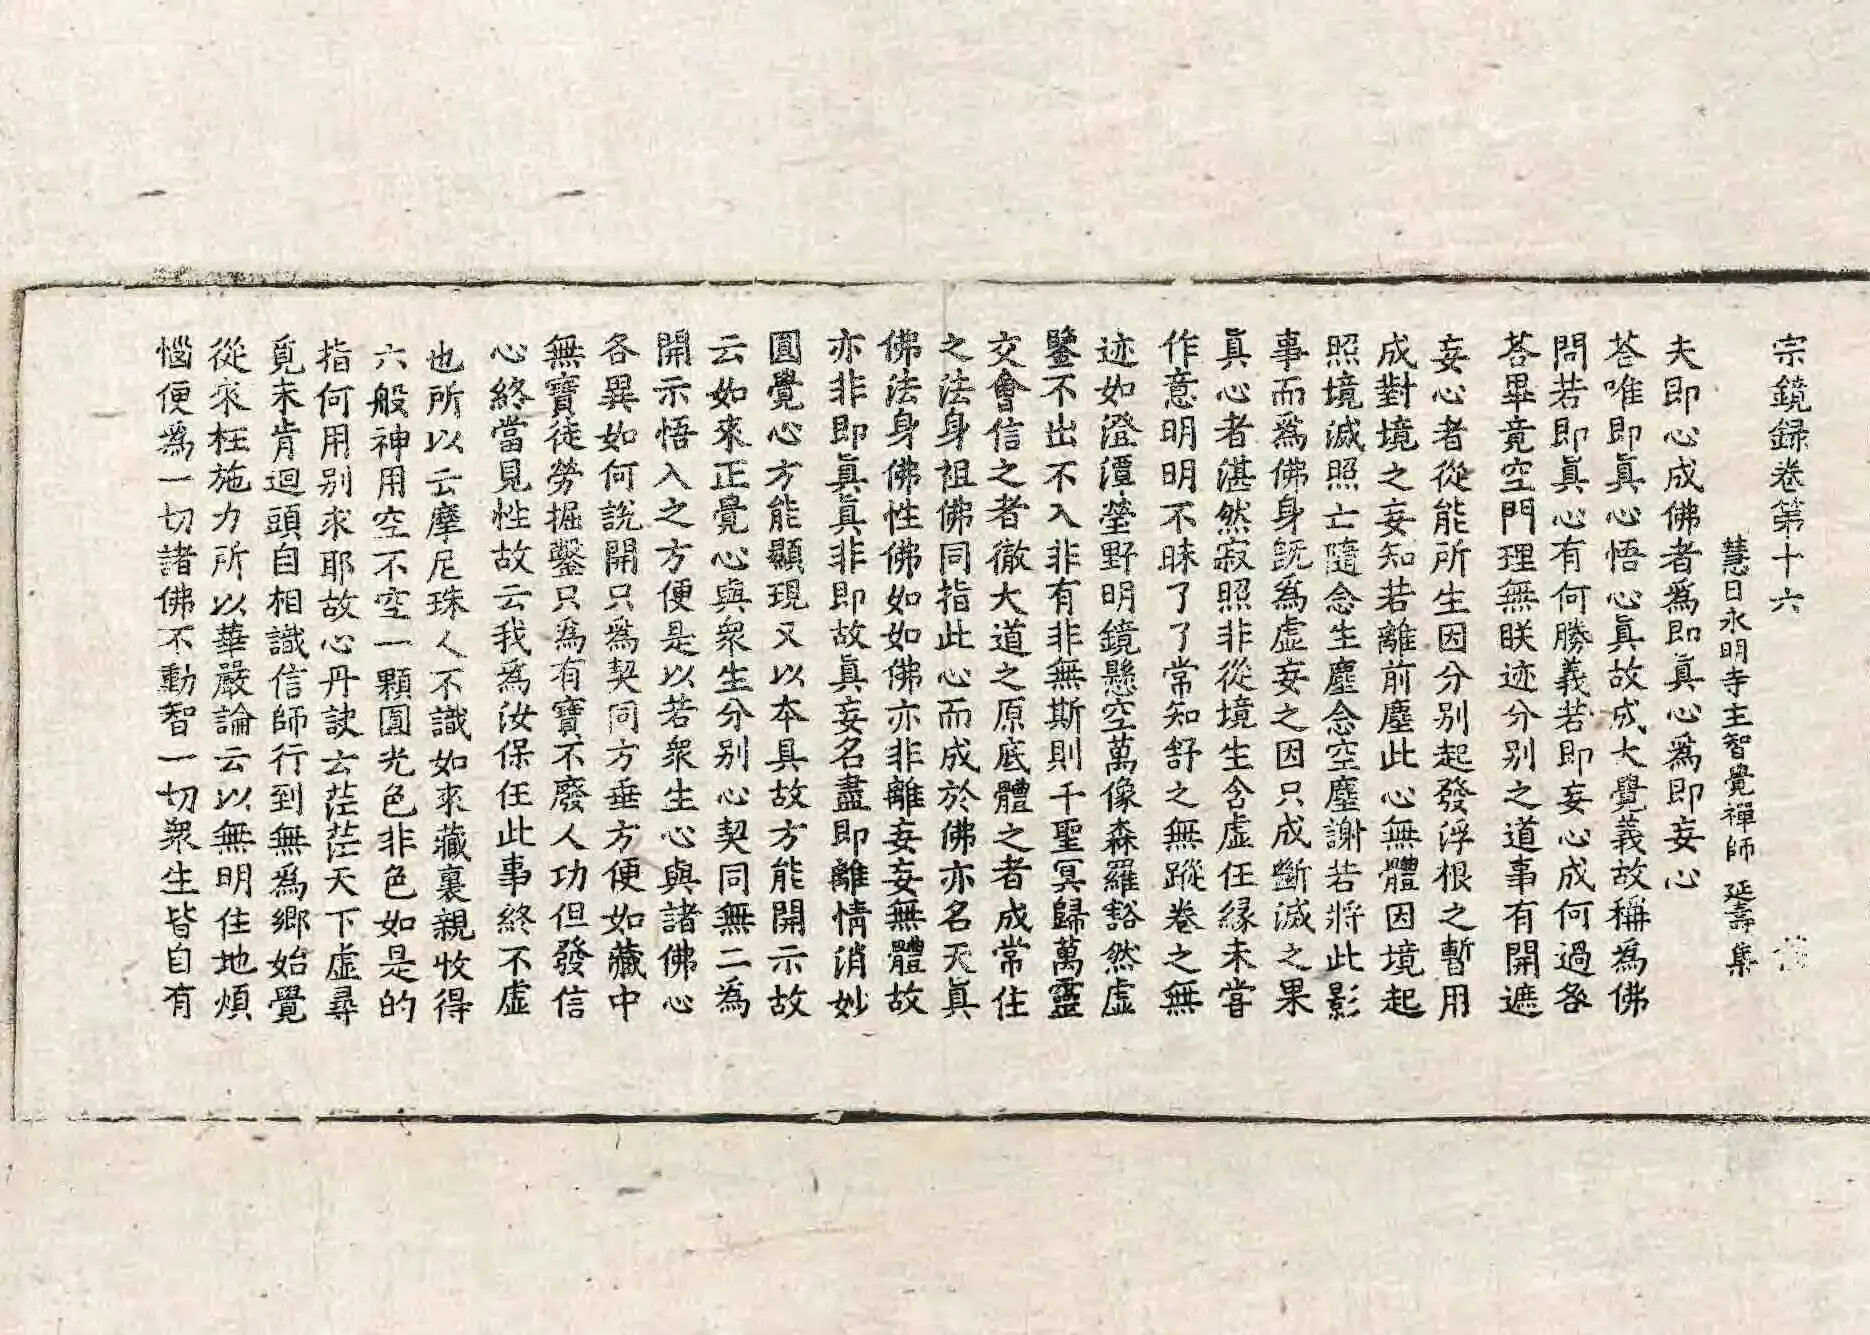 宗鏡録卷第十六
慧日永明寺主智覺禪師 延壽 集
夫即心成佛者為即真心為即妄心
荅唯即真心悟心真故成大覺義故稱為佛
問若即真心有何勝義若即妄心成何過各
荅畢竟空門理無朕迹分別之道事有開遮
妄心者從能所生因分別起發浮根之暫用
成對境之妄知若離前塵此心無體因境起
照境滅照亡隨念生塵念空塵謝若將此影
事而為佛身既為虛妄之因只成斷滅之果
真心者湛然寂照非從境生含虛任緣未甞
作意明明不昧了了常知舒之無蹤卷之無
迹如澄潭瑩野明鏡懸空萬像森羅豁然虛
鑒不出不入非有非無斯則千聖冥歸萬靈
交會信之者徹大道之原底體之者成常住
之法身祖佛同指此心而成於佛亦名天真
佛法身佛性佛如如佛亦非離妄妄無體故
亦非即真真非即故真妄名盡即離情消妙
圓覺心方能顯現又以本具故方能開示故
云如來正覺心與眾生分別心契同無二為
開示悟入之方便是以若眾生心與諸佛心
各異如何說開只為契同方垂方便如藏中
無寶徒勞掘鑿只為有寶不廢人功但發信
心終當見性故云我為汝保任此事終不虛
也所以云摩尼珠人不識如來藏裏親收得
六般神用空不空一顆圓光色非色如是的
指何用別求耶故心丹訣云茫茫天下虛尋
覓未肯迴頭自相識信師行到無為鄉始覺
從來枉施力所以華嚴論云以無明住地煩
惱便為一切諸佛不動智一切眾生皆自有